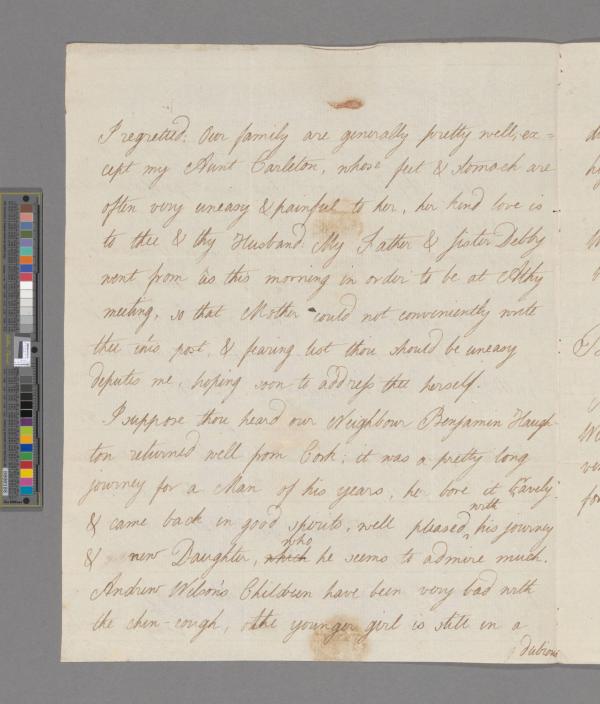 I regretted: Our family are generally pretty well, ex=
cept my Aunt Carleton, whose feet & stomach are
often very uneasy & painful to her, her kind love is
to thee & thy Husband: My Father & sister Debby
went from us this morning in order to be at Athy
meeting, so that Mother could not conveniently write
thee this post, & fearing lest thou should be uneasy
deputes me, hoping soon to address thee herself.
I suppose thou heard our Neighbour Benjamin Haugh-
ton returned well from Cork: it was a pretty long
journey for a Man of his years, he bore it bravely
& came back in good spirits, well pleased with his journey
& new Daughter, which who he seems to admire much.
Andrew Wilson's Children have been very bad with
the chin-cough, the younger girl is still in a
dubious